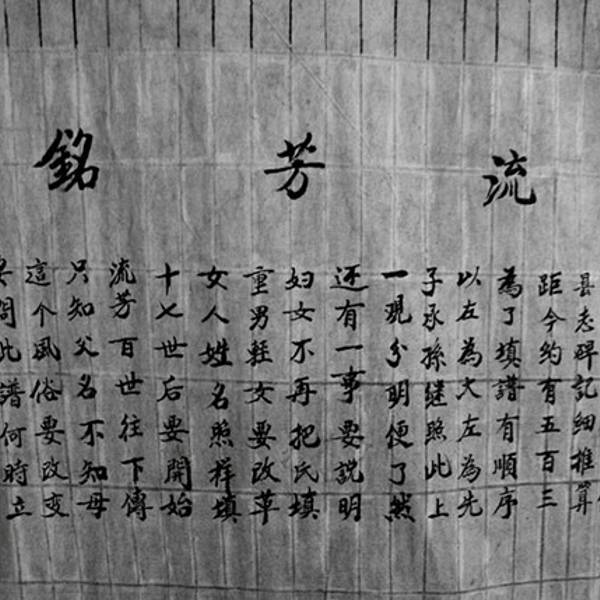 流芳銘
县志碑記細推算
距今約有五百三
為了填譜有順序
以左為大左為先
子承孫継照此上
一現分明便了然
还有一事要説明
妇女不再把氏填
重男輕女要改革
女人姓名照样填
十七世后要開始
流芳百世往下傳
只知父名不知母
這个風俗要改变
要問此譜何時立